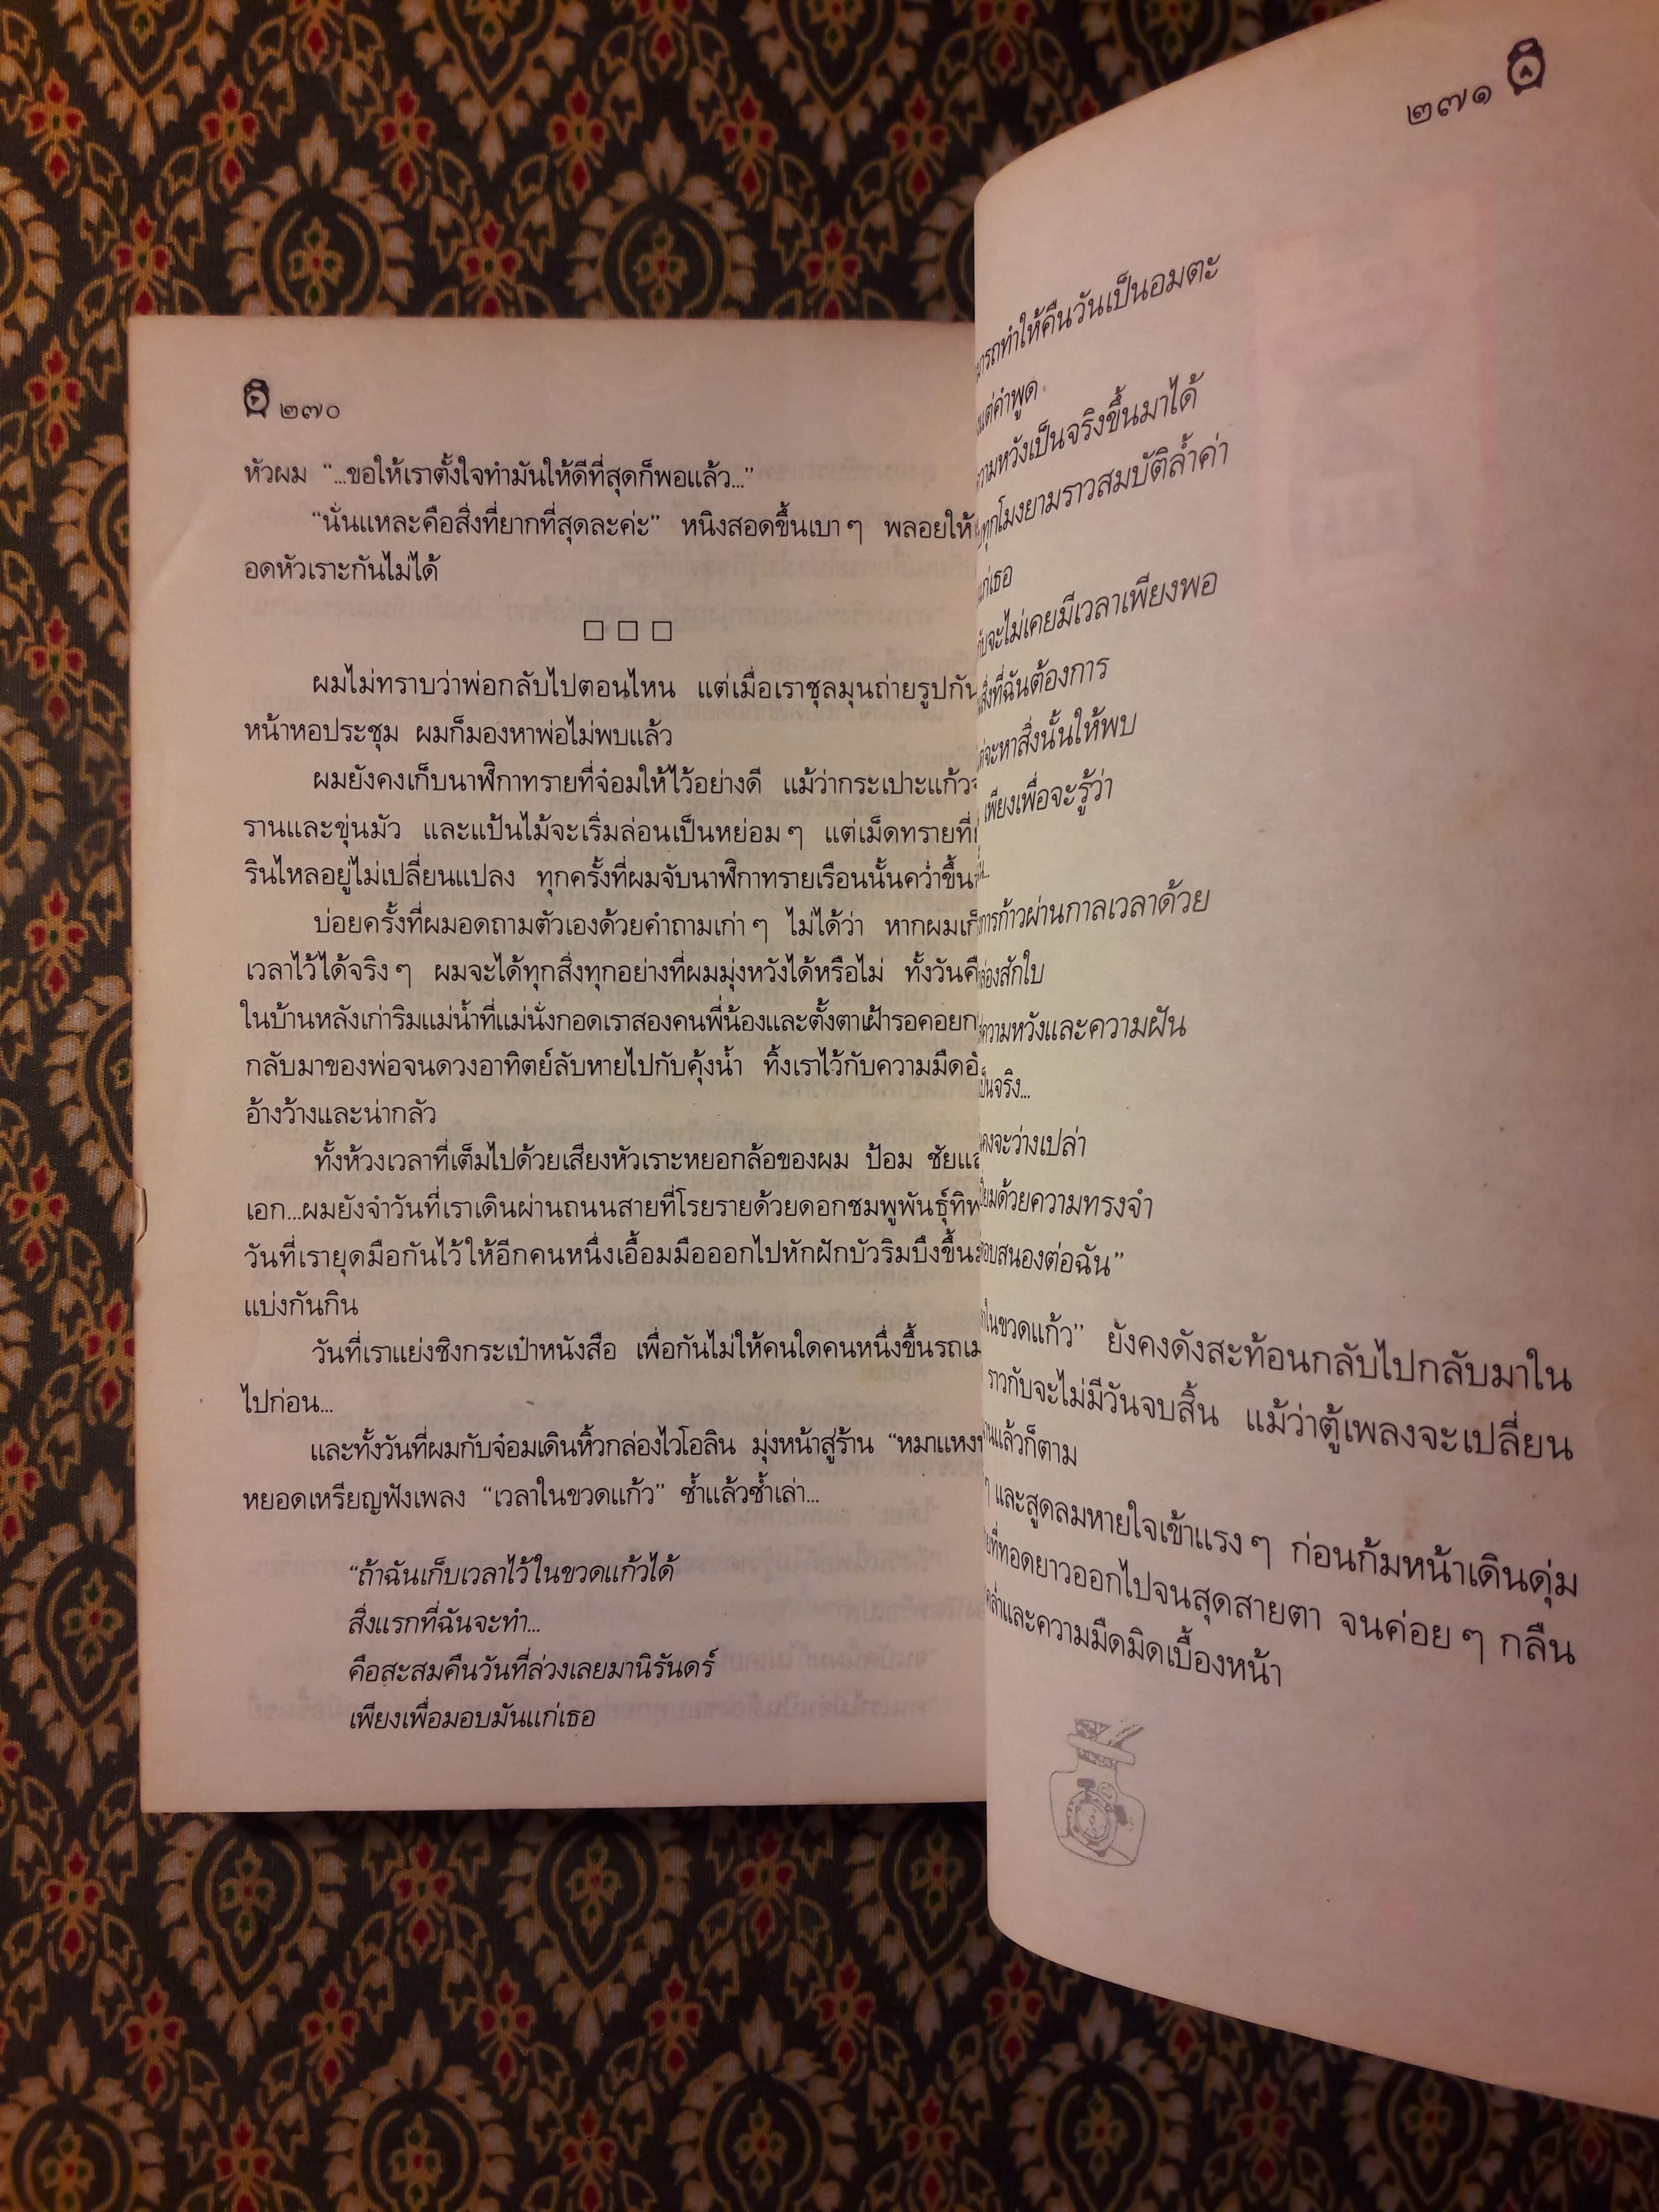 ๒๗๐
หัวผม “...ขอให้เราตั้งใจทำมันให้ดีที่สุดก็พอแล้ว...”
“นั่นแหละคือสิ่งที่ยากที่สุดละค่ะ” หนิงสอดขึ้นเบา ๆ พลอยให้
อดหัวเราะกันไม่ได้
ผมไม่ทราบว่าพ่อกลับไปตอนไหน แต่เมื่อเราชุลมุนถ่ายรูปกัน
หน้าหอประชุม ผมก็มองหาพ่อไม่พบแล้ว
ผมยังคงเก็บนาฬิกาทรายที่จ๋อมให้ไว้อย่างดี แม้ว่ากระเปาะแก้ว
รานและขุ่นมัว และแป้นไม้จะเริ่มล่อนเป็นหย่อม ๆ แต่เม็ดทรายที่
รินไหลอยู่ไม่เปลี่ยนแปลง ทุกครั้งที่ผมจับนาฬิกาทรายเรือนนั้นคว่ำขึ้น
บ่อยครั้งที่ผมอดถามตัวเองด้วยคำถามเก่า ๆ ไม่ได้ว่า หากผม
เวลาไว้ได้จริง ๆ ผมจะได้ทุกสิ่งทุกอย่างที่ผมมุ่งหวังได้หรือไม่ ทั้งวัน
ในบ้านหลังเก่าริมแม่น้ำที่แม่นั่งกอดเราสองคนพี่น้องและตั้งตาเฝ้ารอคอย
กลับมาของพ่อจนดวงอาทิตย์ลับหายไปกับคุ้งน้ำ ทิ้งเราไว้กับความมืด
อ้างว้างและน่ากลัว
ทั้งห้วงเวลาที่เต็มไปด้วยเสียงหัวเราะหยอกล้อของผม ป้อม ชัย
เอก...ผมยังจำวันที่เราเดินผ่านถนนสายที่โรยรายด้วยดอกชมพูพันธุ์ทิพ
วันที่เรายุดมือกันไว้ให้อีกคนหนึ่งเอื้อมมือออกไปหักฝักบัวริมบึงขึ้น
แบ่งกันกิน
วันที่เราแย่งชิงกระเป๋าหนังสือ เพื่อกันไม่ให้คนใดคนหนึ่งขึ้นรถ
ไปก่อน...
และทั้งวันที่ผมกับจ๋อมเดินหิ้วกล่องไวโอลิน มุ่งหน้าสู่ร้าน “หมาแหง
หยอดเหรียญฟังเพลง “เวลาในขวดแก้ว” ซ้ำแล้วซ้ำเล่า...
“ถ้าฉันเก็บเวลาไว้ในขวดแก้วได้
สิ่งแรกที่ฉันจะทำ...
คือสะสมคืนวันที่ล่วงเลยมานิรันดร์
เพียงเพื่อมอบมันแก่เธอ
๒๗๑
ทำให้คืนวันเป็นอมตะ
แต่คำพูด
หวังเป็นจริงขึ้นมาได้
ทุกโมงยามราวสมบัติล้ำค่า
แก่เธอ
จะไม่เคยมีเวลาเพียงพอ
สิ่งที่ฉันต้องการ
จะหาสิ่งนั้นให้พบ
เพียงเพื่อจะรู้ว่า
การก้าวผ่านกาลเวลาด้วย
สักใบ
ความหวังและความฝัน
เป็นจริง...
คงจะว่างเปล่า
ด้วยความทรงจำ
สนองต่อฉัน”
ในขวดแก้ว” ยังคงดังสะท้อนกลับไปกลับมาใน
ราวกับจะไม่มีวันจบสิ้น แม้ว่าตู้เพลงจะเปลี่ยน
แล้วก็ตาม
ๆ และสูดลมหายใจเข้าแรง ๆ ก่อนก้มหน้าเดินดุ่ม
ที่ทอดยาวออกไปจนสุดสายตา จนค่อย ๆ กลืน
และความมืดมิดเบื้องหน้า